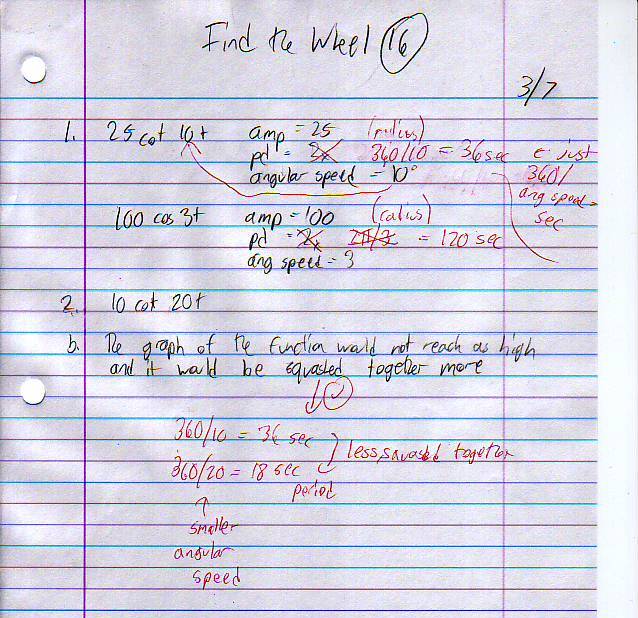 Find the Wheel 16
3/7
1. 25 cot 10t amp = 25 (radius)
pd = 360/10 = 36 sec ← just
angular speed = 10° 360/
ang speed =
sec
100 cos 3t amp = 100 (radius)
pd = 2π/3 = 120 sec
ang speed = 3
2. 10 cot 20t
b. The graph of the function would not reach as high
and it would be squashed together more
360/10 = 36 sec
less squashed together
360/20 = 18 sec
period
↑
smaller
angular
speed